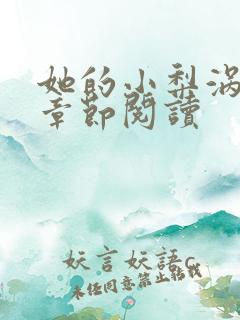 她的小梨涡
章節閱讀
妖言妖語c
未经同意禁止转载